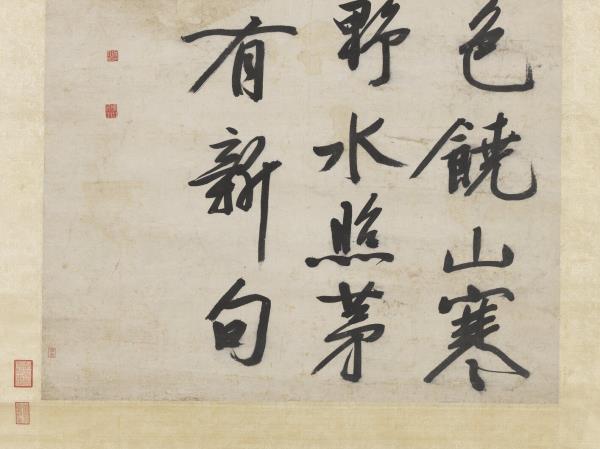 色饒山寒
野水照茅
有新句